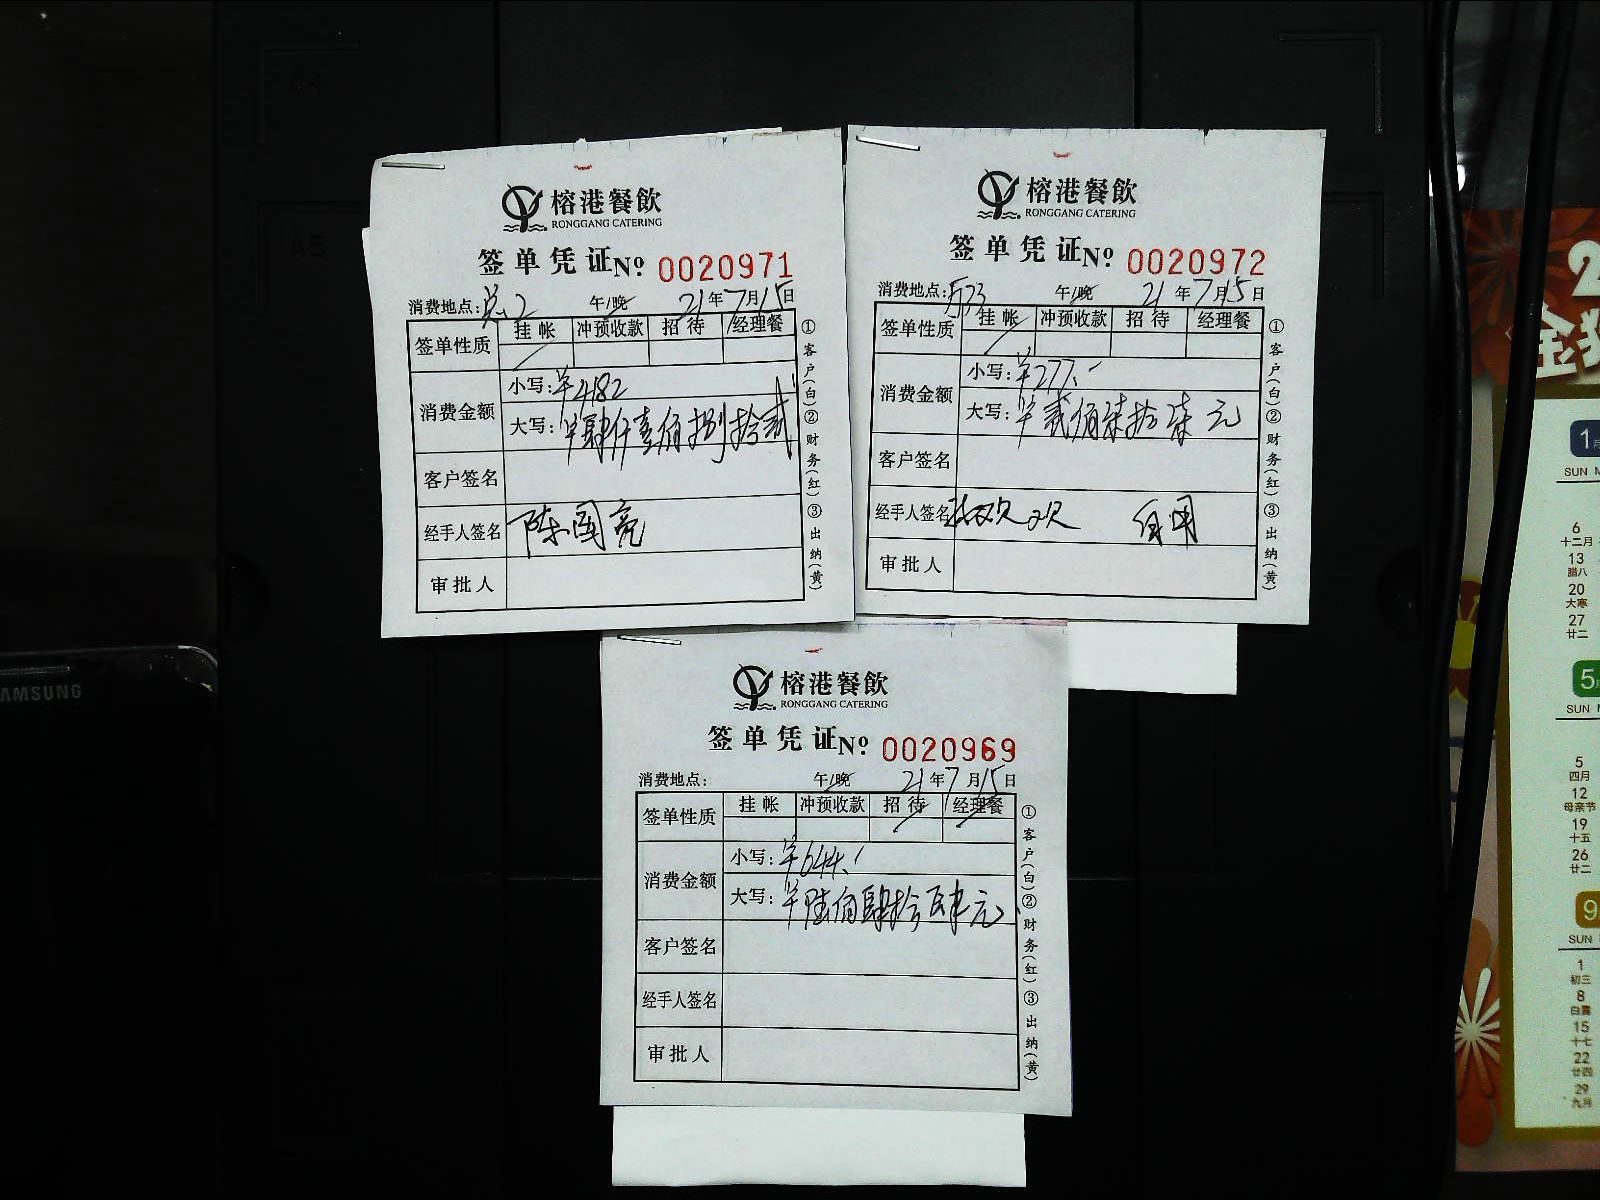 榕港餐飲
RONGGANG CATERING
签单凭证 No. 0020971
消费地点: 午/晚 21年7月15日
签单性质 挂帐 冲预收款 招待 经理餐
消费金额
小写:¥4182
大写:¥肆仟壹佰捌拾贰
客户签名
经手人签名 陈国亮
审批人
①客户(白)②财务(红)③出纳(黄)
榕港餐飲
RONGGANG CATERING
签单凭证 No. 0020972
消费地点: 午/晚 21年7月15日
签单性质 挂帐 冲预收款 招待 经理餐
消费金额
小写:¥277.-
大写:¥贰佰柒拾柒元
客户签名
经手人签名
审批人
①客户(白)②财务(红)③出纳(黄)
榕港餐飲
RONGGANG CATERING
签单凭证 No. 0020969
消费地点: 午/晚 21年7月15日
签单性质 挂帐 冲预收款 招待 经理餐
消费金额
小写:¥644.-
大写:¥陆佰肆拾肆元
客户签名
经手人签名
审批人
①客户(白)②财务(红)③出纳(黄)
AMSUNG
A5
1月
SUN
6
十二月
13
腊八
20
大寒
27
廿二
5月
SUN
5
四月
12
母亲节
19
十五
26
廿二
9
SUN
1
初三
8
白露
15
十七
22
廿四
29
九月